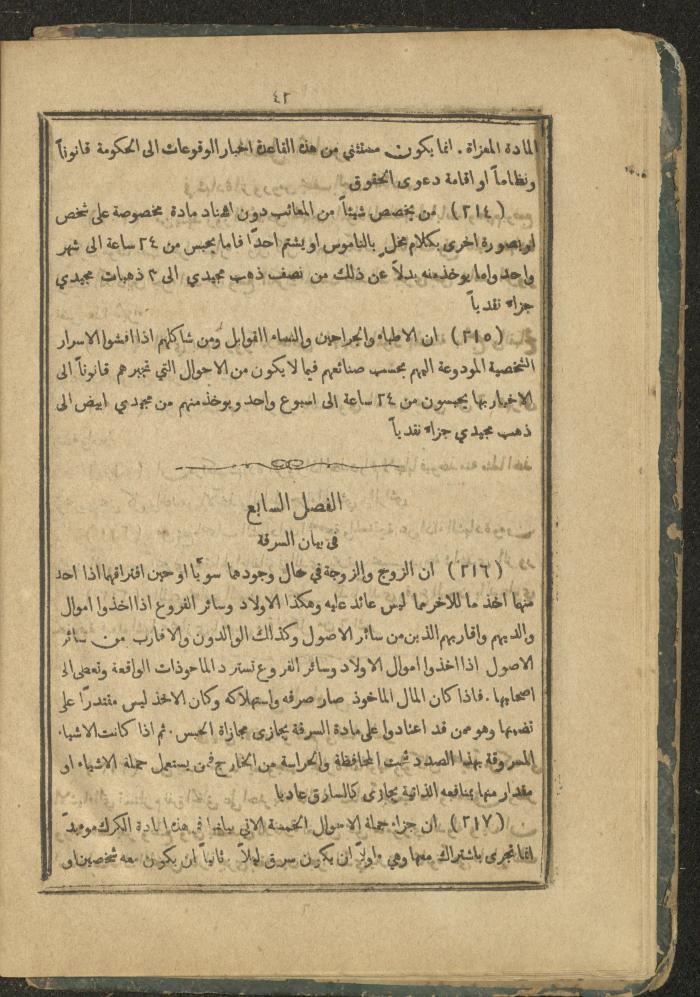 ٢٤
المادة المعزاة . انما يكون مستثنى من هذه القاعدة اخبار الوقوعات الى الحكومة قانوناً
ونظاماً او اقامة دعوى الحقوق
(٢١٤) من يخصص شيئاً من المعائب دون اسناد مادة مخصوصة على شخص
او بصورة اخرى بكلام مخل بالناموس او يشتم احداً فاما يحبس من ٢٤ ساعة الى شهر
واحد واما يوخذ منه بدلاً عن ذلك من نصف ذهب مجيدي الى ٣ ذهبات مجيدي
جزاء نقدياً
(٢١٥) ان الاطباء والجراحين والنساء القوابل ومن شاكلهم اذا افشوا الاسرار
الشخصية المودوعة اليهم بحسب صنائعهم فيما لا يكون من الاحوال التي تجبرهم قانوناً الى
الاخبار بها يحبسون من ٢٤ ساعة الى اسبوع واحد ويوخذ منهم من مجيدي ابيض الى
ذهب مجيدي جزاء نقدياً
الفصل السابع
في بيان السرقة
(٢١٦) ان الزوج والزوجة في حال وجودهما سويا او حين افتراقهما اذا احد
منهما اخذ ما للاخر مما ليس عائد عليه وهكذا الاولاد وسائر الفروع اذا اخذوا اموال
والديهم واقاربهم الذين من سائر الاصول وكذلك الوالدون والاقارب من سائر
الاصول اذا اخذوا اموال الاولاد وسائر الفروع تسترد الماخوذات الواقعة وتعطى الى
اصحابها . فاذا كان المال الماخوذ صار صرفه واستهلاكه وكان الاخذ ليس مقتدرًا على
تضمينها وهو ممن قد اعتادوا على مادة السرقة يجازى مجازاة الحبس . ثم اذا كانت الاشياء
المسروقة بهذا الصدد تحت المحافظة والحراسة من الخارج فمن يستعمل جملة الاشياء او
مقدار منها بمنافعه الذاتية يجازى كالسارق عاديا
(٢١٧) ان جزاء جملة الاحوال الخمسة الاتي بيانها في هذه المادة الكرك موبداً
انما تجرى باشتراك معها وهي . اولاً ان يكون سرق ليلاً . ثانياً ان يكون معه شخصين او